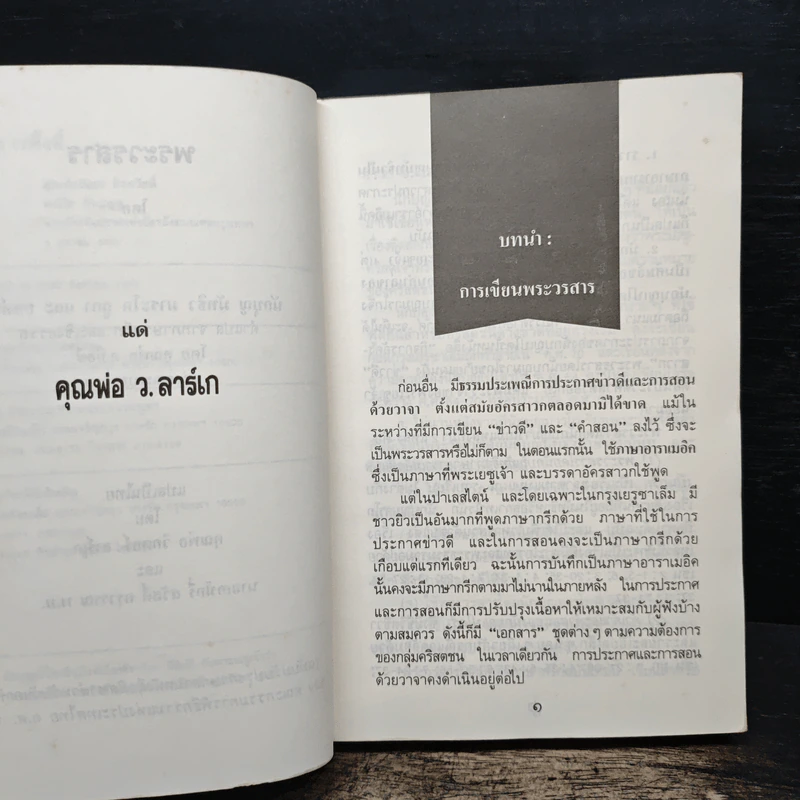 แด่
คุณพ่อ ว. ลาร์เก
บทนำ :
การเขียนพระวรสาร
ก่อนอื่น มีธรรมประเพณีการประกาศข่าวดีและการสอน
ด้วยวาจา ตั้งแต่สมัยอัครสาวกตลอดมามิได้ขาด แม้ใน
ระหว่างที่มีการเขียน “ข่าวดี” และ “คำสอน” ลงไว้ ซึ่งจะ
เป็นพระวรสารหรือไม่ก็ตาม ในตอนแรกนั้น ใช้ภาษาอาราเมอิค
ซึ่งเป็นภาษาที่พระเยซูเจ้า และบรรดาอัครสาวกใช้พูด
แต่ในปาเลสไตน์ และโดยเฉพาะในกรุงเยรูซาเล็ม มี
ชาวยิวเป็นอันมากที่พูดภาษากรีกด้วย ภาษาที่ใช้ในการ
ประกาศข่าวดี และในการสอนคงจะเป็นภาษากรีกด้วย
เกือบแต่แรกทีเดียว ฉะนั้นการบันทึกเป็นภาษาอาราเมอิค
นั้นคงจะมีภาษากรีกตามมาไม่นานในภายหลัง ในการประกาศ
และการสอนก็มีการปรับปรุงเนื้อหาให้เหมาะสมกับผู้ฟังบ้าง
ตามสมควร ดังนี้ก็มี “เอกสาร” ชุดต่าง ๆ ตามความต้องการ
ของกลุ่มคริสตชน ในเวลาเดียวกัน การประกาศและการสอน
ด้วยวาจาคงดำเนินอยู่ต่อไป
๑